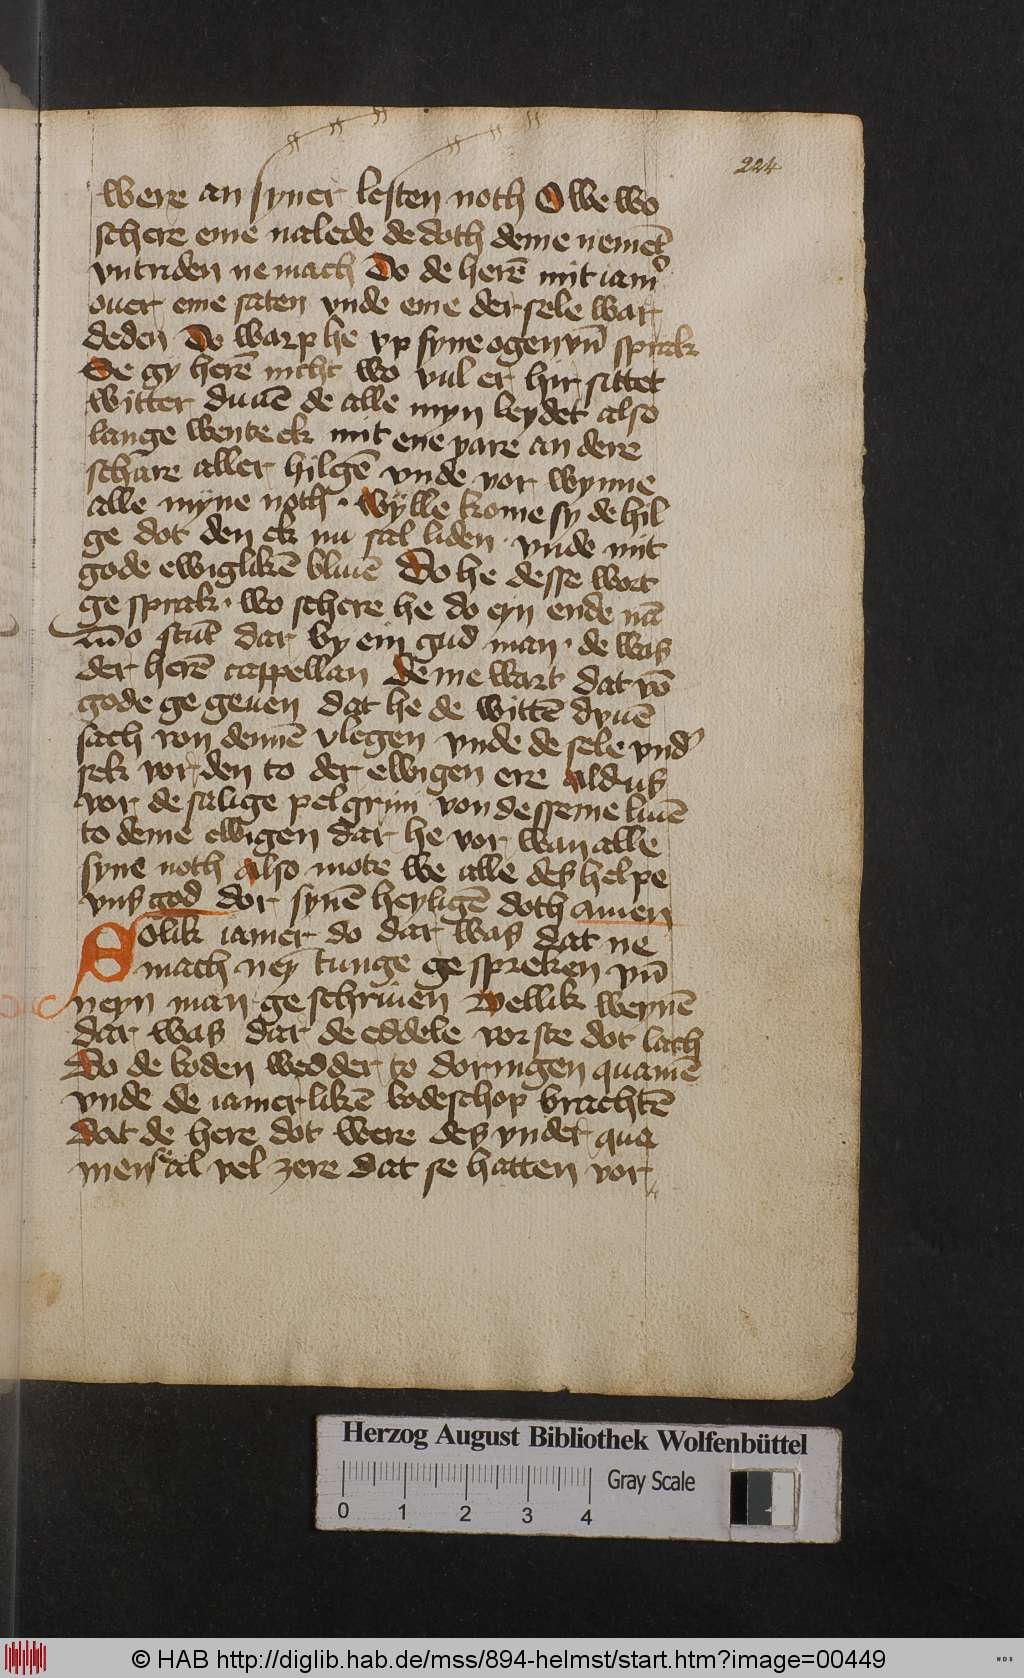 224
were an syner lesten noth O we wo
schere eme nalede de doth deme nemēt
vntriden ne mach Do de herē mit iam̄
ouer eme saten vnde eme der sele war
deden Do warp he vp syne ogen vn̄ sprak
Se gy herē nicht wo vul er hir sittet
witter duuē de alle myn beydet also
lange wente ek mit ene vare an dere
schare aller hilgē vnde vor wynne
alle myne noth · wylle kome sy de hil
ge dot den ek nu sal liden · vnde mit
gode ewiglikē bliuē Do he desse wort
ge sprak · wo schere he do eyn ende nā
stūt dar by ein gud man · de was
der herē cappellan Deme wart dat vō
gode ge geuen dat he de wittē dvuē
sach von dennē vlegen vnde de sele vnd̾
sek vorden to der ewigen ere Aldus
vor de salige pelgrim von desseme liuē
to deme ewigen dar he vor wan alle
syne noth Also mote we alle des helpe
vns god dor synē heyligē doth amen
Solik iamer do dar was dat ne
mach ney tunge ge spreken vn̄
neyn man ge schriuen Wellik weynē
dar was dar de eddele vorste dot lach
Do de boden wedder to doringen quamē
vnde de iamerlikē bodeschop brachtē
Dat de here dot were des vndet qua
men se al vel zere dat se hatten vor
Herzog August Bibliothek Wolfenbüttel
Gray Scale
0 1 2 3 4
© HAB http://diglib.hab.de/mss/894-helmst/start.htm?image=00449